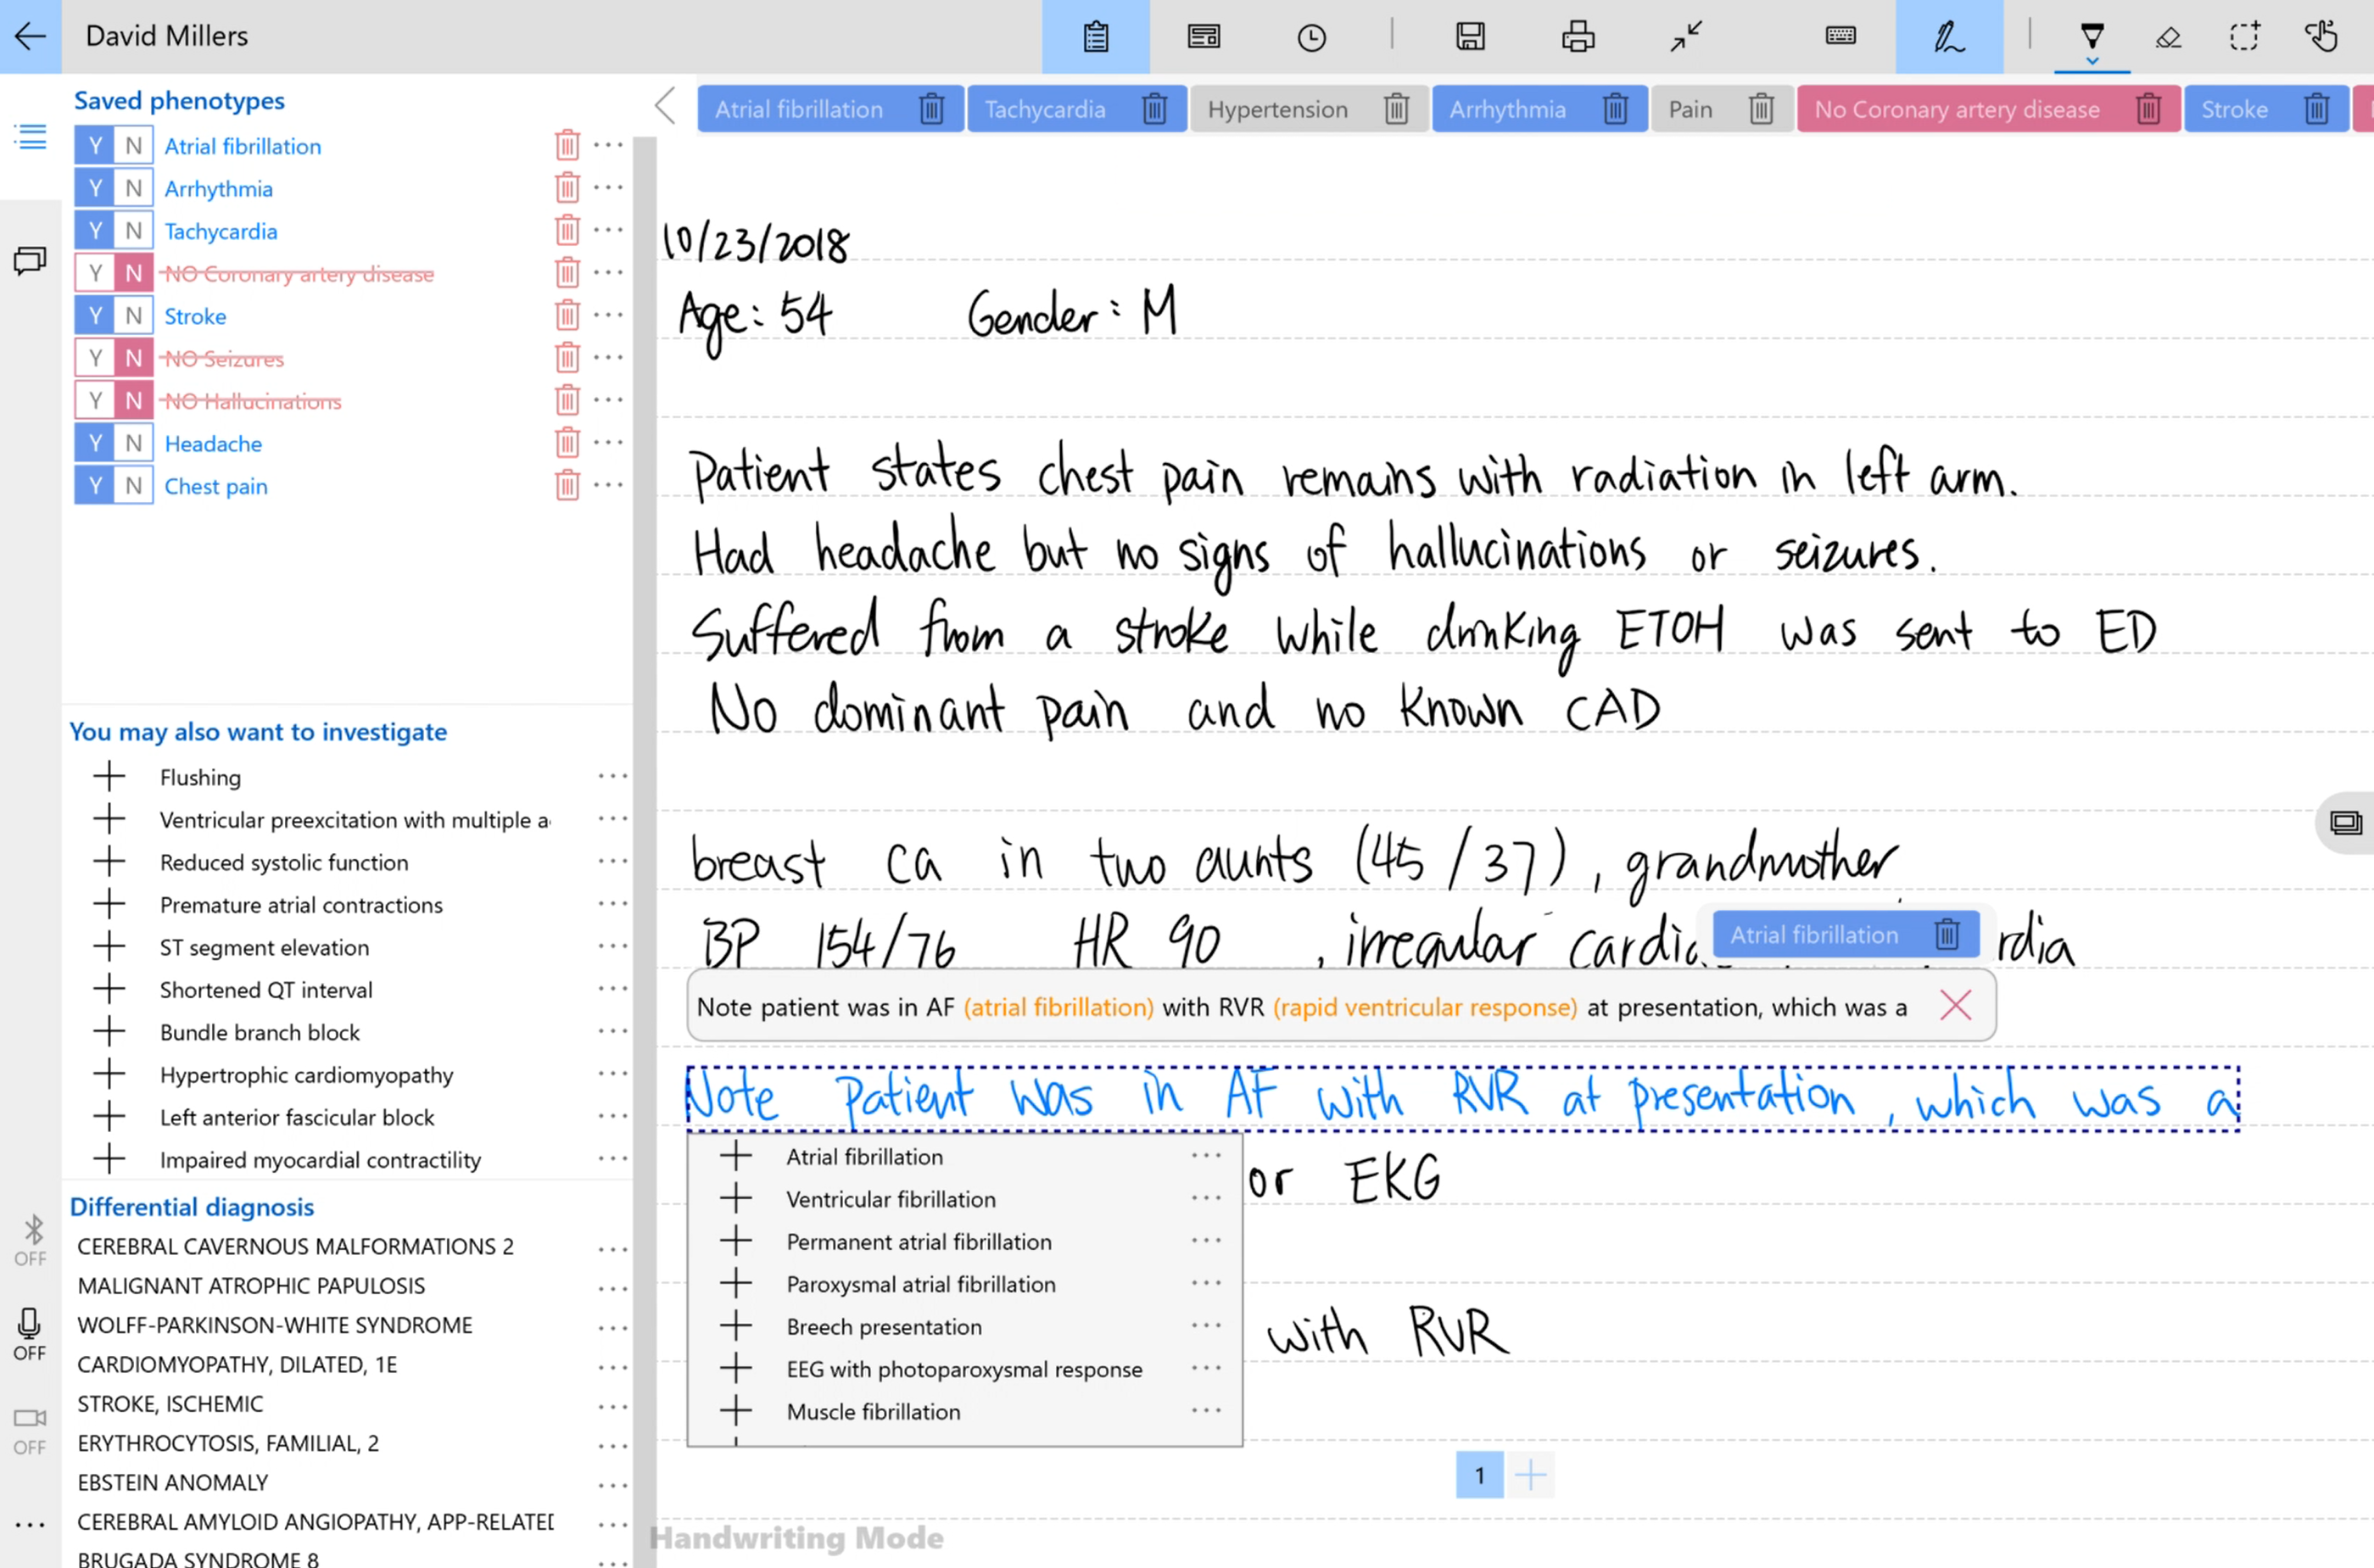 David Millers
Saved phenotypes
Y N Atrial fibrillation
Y N Arrhythmia
Y N Tachycardia
Y N NO Coronary artery disease
Y N Stroke
Y N NO Seizures
Y N NO Hallucinations
Y N Headache
Y N Chest pain
You may also want to investigate
Flushing
Ventricular preexcitation with multiple a
Reduced systolic function
Premature atrial contractions
ST segment elevation
Shortened QT interval
Bundle branch block
Hypertrophic cardiomyopathy
Left anterior fascicular block
Impaired myocardial contractility
Differential diagnosis
CEREBRAL CAVERNOUS MALFORMATIONS 2
MALIGNANT ATROPHIC PAPULOSIS
WOLFF-PARKINSON-WHITE SYNDROME
CARDIOMYOPATHY, DILATED, 1E
STROKE, ISCHEMIC
ERYTHROCYTOSIS, FAMILIAL, 2
EBSTEIN ANOMALY
CEREBRAL AMYLOID ANGIOPATHY, APP-RELATED
BRUGADA SYNDROME 8
OFF
OFF
OFF
Atrial fibrillation Tachycardia Hypertension Arrhythmia Pain No Coronary artery disease Stroke
10/23/2018
Age: 54 Gender: M
Patient states chest pain remains with radiation in left arm.
Had headache but no signs of hallucinations or seizures.
Suffered from a stroke while drinking ETOH was sent to ED
No dominant pain and no known CAD
breast ca in two aunts (45/37), grandmother
BP 154/76 HR 90 , irregular cardia Atrial fibrillation rdia
Note patient was in AF (atrial fibrillation) with RVR (rapid ventricular response) at presentation, which was a
Note patient was in AF with RVR at presentation, which was a
Atrial fibrillation
or EKG
Ventricular fibrillation
Permanent atrial fibrillation
Paroxysmal atrial fibrillation
Breech presentation
with RVR
EEG with photoparoxysmal response
Muscle fibrillation
1
Handwriting Mode